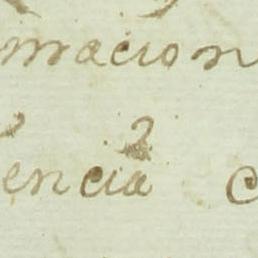 macion
encia